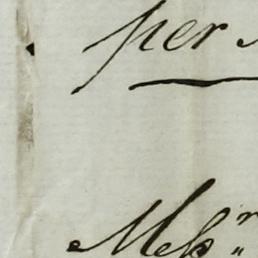 per
Mess.rs